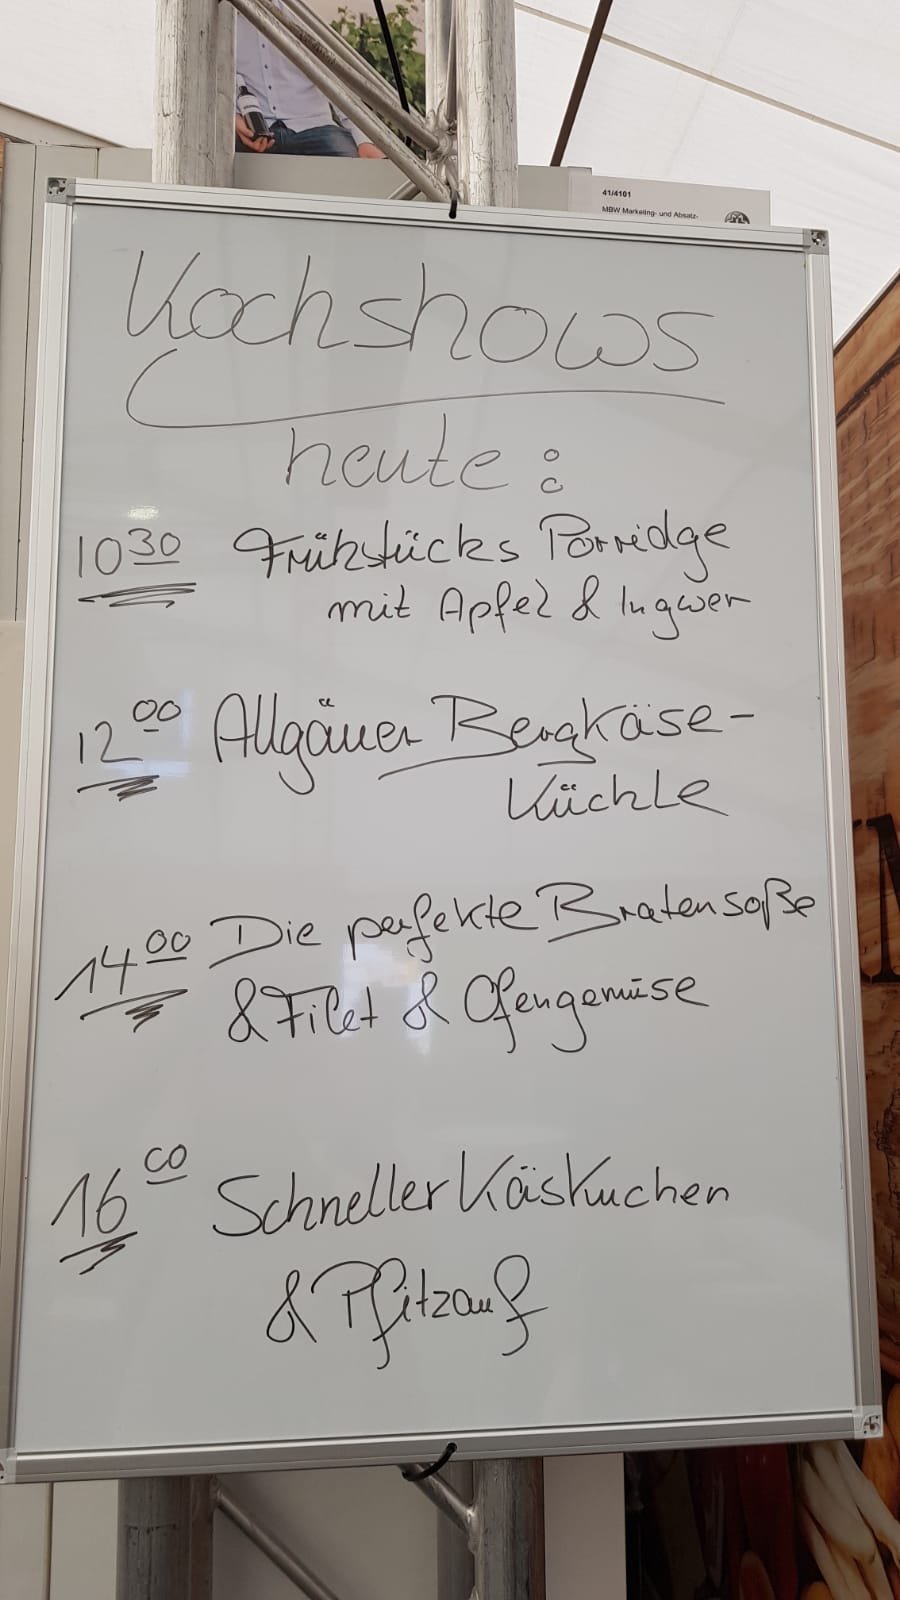 41/4101
MBW Marketing- und Absatz-
Kochshows
heute:
10 30 Frühstücks Porridge
mit Apfel & Ingwer
12 00 Allgäuer Bergkäse-
Küchle
14 00 Die perfekte Bratensoße
& Filet & Ofengemüse
16 00 Schneller Käskuchen
& Pfitzauf